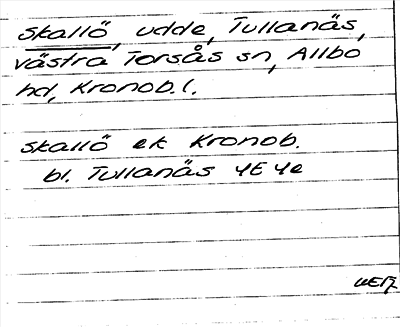 Skallö, udde, Tullanäs,
västra Torsås sn, Allbo
hd, Kronob. l.
Skallö ek Kronob.
bl. Tullanäs 4E 4e